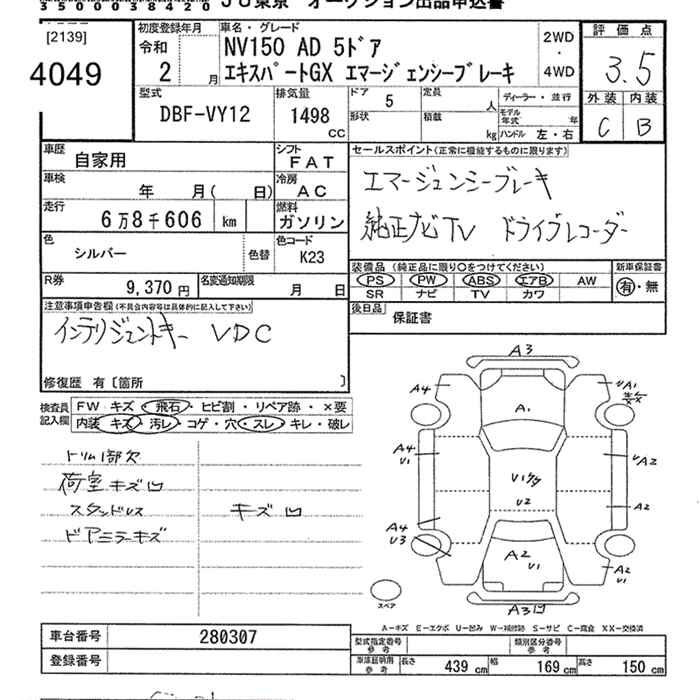 35000038420
JU東京 オークション出品申込書
[2139]
4049
初度登録年月
令和
2 月
車名・グレード
NV150 AD 5ドア
エキスパートGX エマージェンシーブレーキ
2WD
・
4WD
評価点
3.5
外装 内装
C B
型式
DBF-VY12
排気量
1498
CC
ドア 5
形状
定員 人
積載 kg
ディーラー・並行
モデル年式 年
ハンドル 左・右
車歴
自家用
シフト
FAT
車検
年 月( 日)
冷房
AC
走行
6万8千606 km
燃料
ガソリン
色
シルバー
色替
色コード
K23
R券
9,370 円
名変通知期限
月 日
セールスポイント(正常に機能するものに限ります)
エマージェンシーブレーキ
純正ナビTV ドライブレコーダー
装備品 (純正品に限り○をつけてください)
PS PW ABS エアB AW
SR ナビ TV カワ
新車保証書
有・無
後日品
保証書
注意事項申告欄(不具合内容等は具体的に記入して下さい)
インテリジェントキー VDC
修復歴 有〔箇所 〕
検査員
記入欄
FW キズ・飛石・ヒビ割・リペア跡・×要
内装 キズ・汚レ・コゲ・穴・スレ・キレ・破レ
トリム1部欠
荷室キズ凹
スタンドレス
キズ凹
ドアミラーキズ
A3
A4
A1
UA1
A4
U1
UA2
U2
A2
A4
U3
A2
U1
A2
U1
A3凹
スペア
A-キズ E-エクボ U-凹み W-補修跡 S-サビ C-腐食 XX-交換済
車台番号 280307
登録番号
型式指定番号
参考
類別区分番号
参考
車庫証明用
参考
長さ 439 cm
幅 169 cm
高さ 150 cm